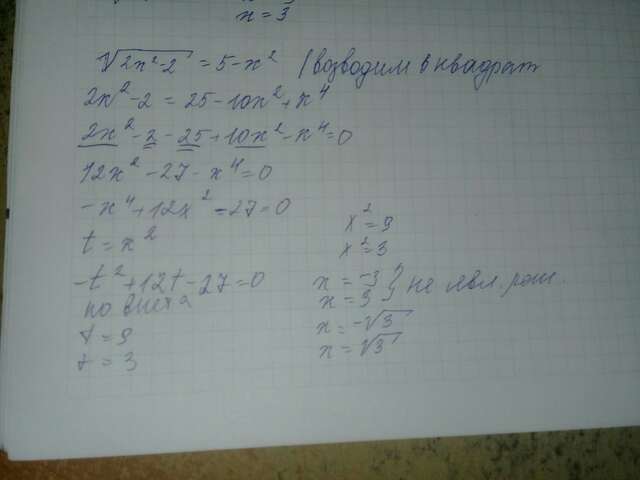 x = 3
√2x²-2 = 5-x² / возводим в квадрат
2x²-2 = 25-10x²+x⁴
2x²-2-25+10x²-x⁴=0
12x²-27-x⁴=0
-x⁴+12x²-27=0
t=x²
-t²+12t-27=0
по Виета
t=9
t=3
x²=9
x²=3
x=-3
x=3 } не явл. реш.
x=-√3
x=√3